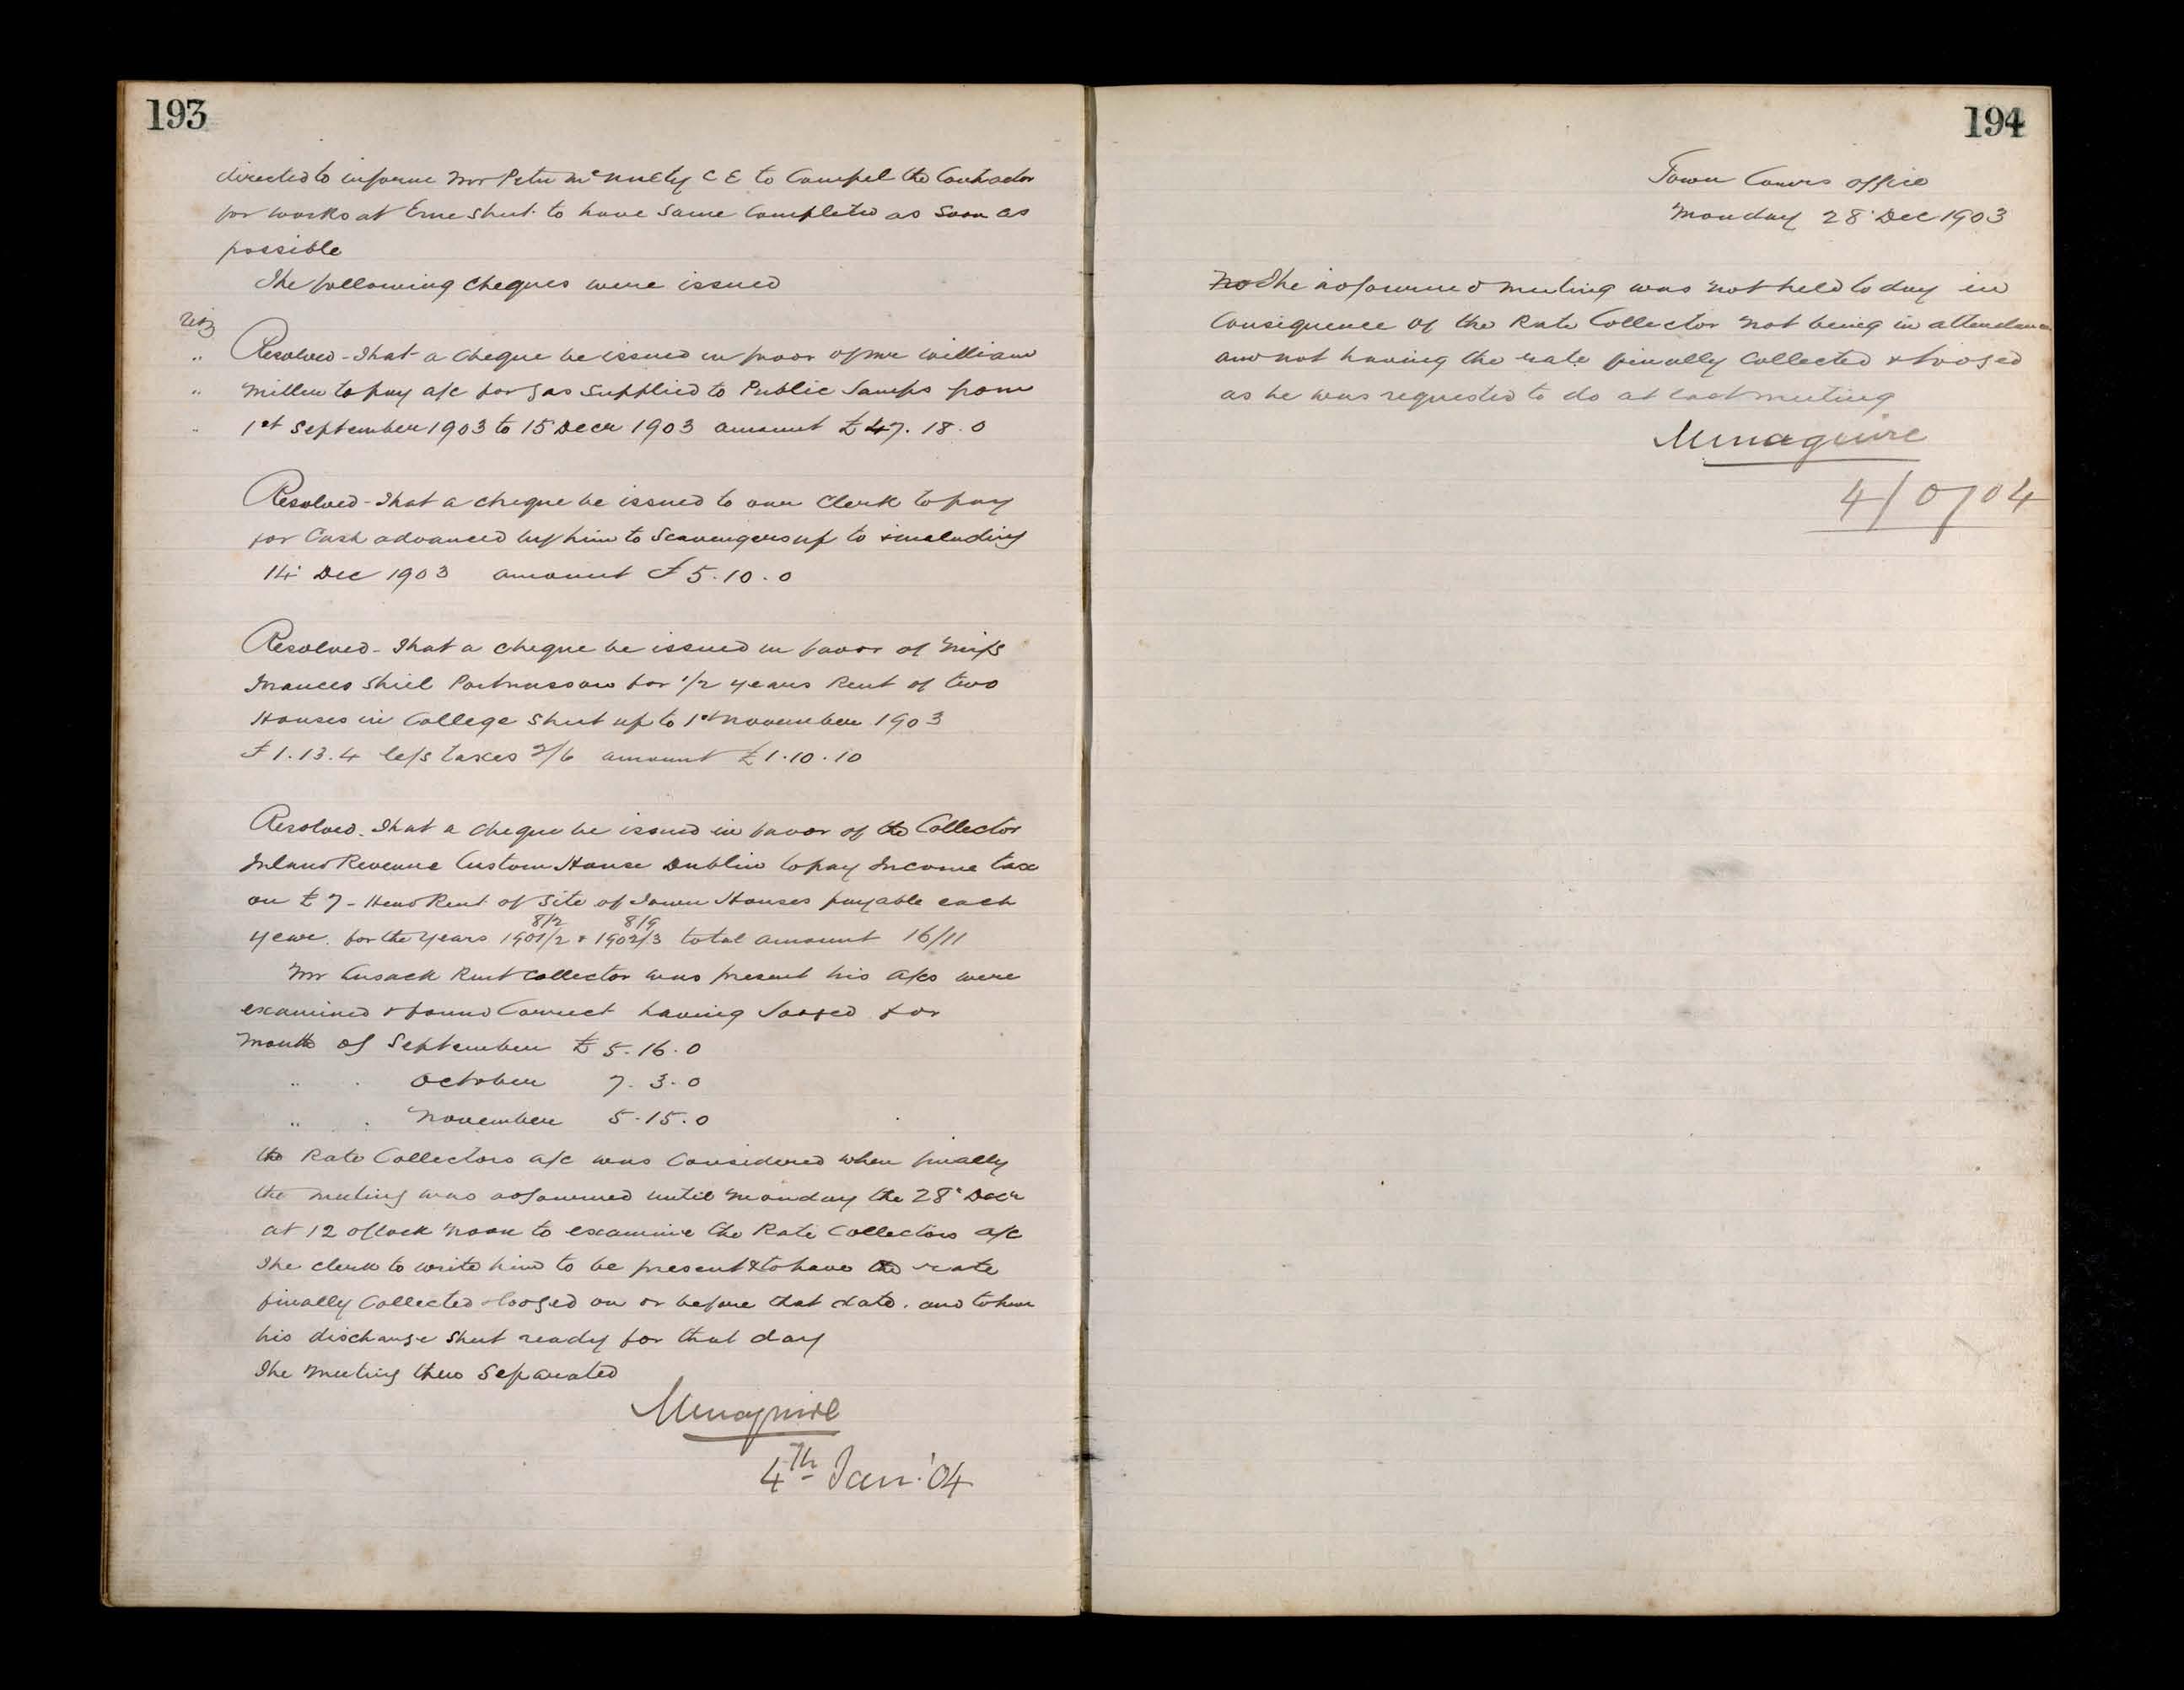 193
directed to inform Mr Peter McNulty C E to Compel the Contractor
for works at Erne Street to have same Completed as soon as
possible
The following cheques were issued
viz
" Resolved - That a cheque be issued in favor of Mr William
" Miller to pay a/c for gas supplied to Public Lamps from
" 1st September 1903 to 15 Decr 1903 amount £47.18.0
Resolved - That a cheque be issued to our Clerk to pay
for Cash advanced by him to Scavengers up to & including
14 Dec 1903 amount £5.10.0
Resolved - That a cheque be issued in favor of Miss
Frances Shiel Portnason for 1/2 years Rent of two
Houses in College Street up to 1st November 1903
£1.13.4 less taxes 2/6 amount £1.10.10
Resolved. That a cheque be issued in favor of the Collector
Inland Revenue Custom House Dublin to pay Income tax
on £7 - Head Rent of Site of Town Houses payable each
8/2 8/9
year. for the years 1901/2 & 1902/3 total amount 16/11
Mr Cusack Rent Collector was present his a/cs were
examined & found Correct having lodged for
Month of September £5.16.0
" . October 7.3.0
" . November 5.15.0
the Rate Collectors a/c was Considered when finally
the meeting was adjourned until Monday the 28 Decr
at 12 oClock Noon to examine the Rate Collectors a/c
The clerk to write him to be present & to have the rate
finally Collected & lodged on or before that date. and to have
his discharge sheet ready for that day
The Meeting then Separated
MMaguire
4th Jan. '04
194
Town Comrs office
Monday 28 Dec 1903
No The adjourned meeting was not held to day in
Consequence of the Rate Collector not being in attendance
and not having the rate finally Collected & lodged
as he was requested to do at last meeting
MMaguire
4/0/04